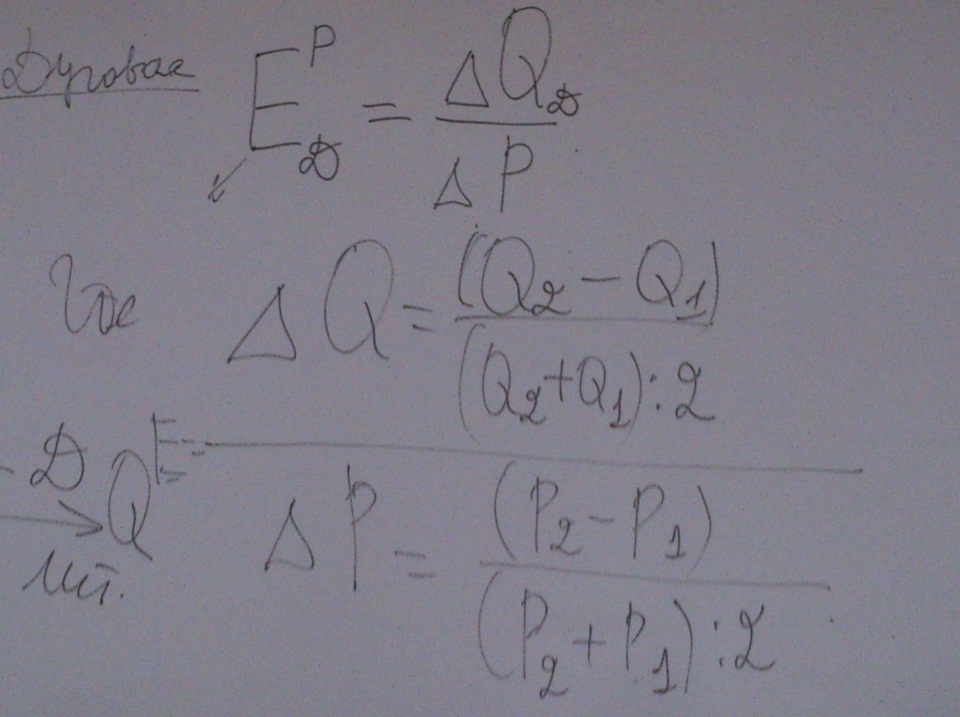 Дуговая E^P_Д = ΔQ_Д / ΔP
Где ΔQ = (Q₂ − Q₁) / (Q₂ + Q₁) : 2
Д Q E =
шт. ΔP = (P₂ − P₁) / (P₂ + P₁) : 2